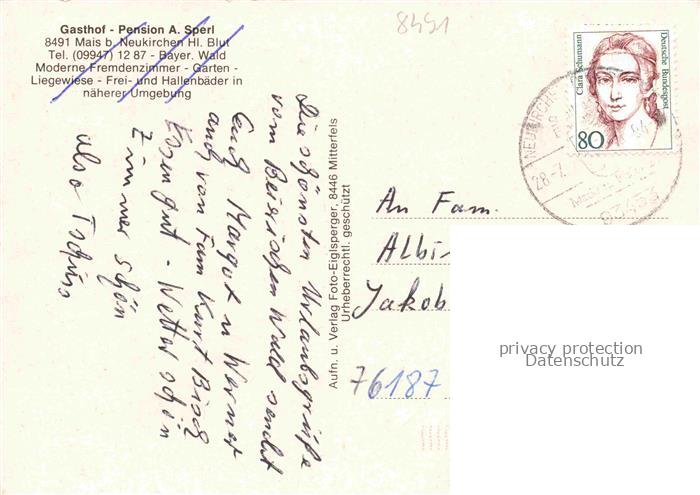 8491
Gasthof - Pension A. Sperl
8491 Mais b. Neukirchen Hl. Blut
Tel. (09947) 12 87 - Bayer. Wald
Moderne Fremdenzimmer - Garten -
Liegewiese - Frei- und Hallenbäder in
näherer Umgebung
Clara Schumann
Deutsche Bundespost
80
NEUKIRCHE
28.-7.
93453
Die schönsten Urlaubsgrüße
vom Beirischen Wald sendet
Euch Margot u Werner
auch von Fam Kurt Bisch
Essen gut - Wetter schön
Zimmer schön
also Tschüss
Aufn. u. Verlag Foto-Eiglsperger, 8446 Mitterfels
Urheberrechtl. geschützt
An Fam.
Albi
Jakob
76187
privacy protection
Datenschutz